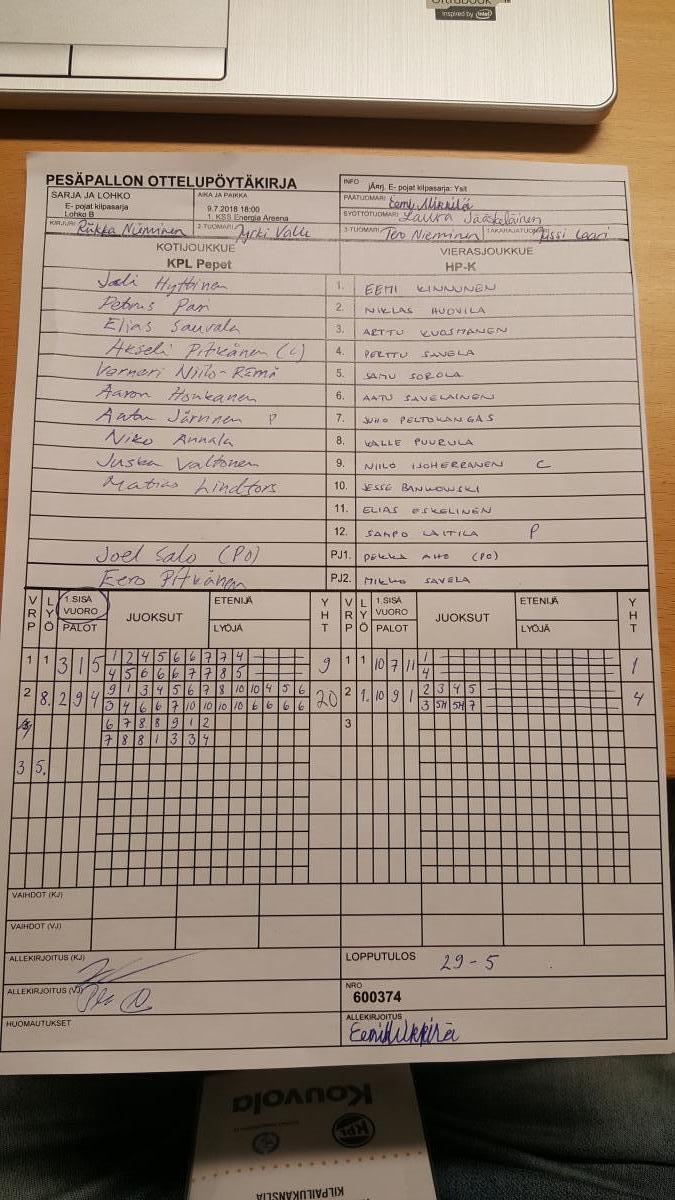 inspired by intel
PESÄPALLON OTTELUPÖYTÄKIRJA
INFO
jÄrrj. E- pojat kilpasarja: Ysit
SARJA JA LOHKO
E- pojat kilpasarja
Lohko B
AIKA JA PAIKKA
9.7.2018 18:00
1. KSS Energia Areena
PÄÄTUOMARI Eemi Mikkilä
SYÖTTÖTUOMARI Laura Jääskeläinen
KIRJURI Riikka Nieminen
2-TUOMARI Jyrki Valle
3-TUOMARI Tero Nieminen
KOTIJOUKKUE
KPL Pepet
VIERASJOUKKUE
HP-K
Joeli Hyttinen 1. EEMI KINNUNEN
Petrus Pari 2. NIKLAS HUOVILA
Elias Sauvala 3. ARTTU KUOSMANEN
Akseli Pitkänen (C) 4. PERTTU SAVELA
Verneri Niilo-Rämä 5. SAMU SOROLA
Aaron Honkanen 6. AATU SAVELAINEN
Anton Järvinen P 7. JUHO PELTOKANGAS
Niko Annala 8. VALLE PUURULA
Juska Valtonen 9. NIILO ISOHERRANEN C
Matias Lindfors 10. JESSE BANKOWSKI
11. ELIAS ESKELINEN
12. SAMPO LAITILA P
Joel Salo (PO) PJ1. PEKKA AHO (PO)
Eero Pitkänen PJ2. MIKKO SAVELA
VRP LYÖ 1.SISÄ VUORO PALOT JUOKSUT ETENIJÄ LYÖJÄ YHT
VRP LYÖ 1.SISÄ VUORO PALOT JUOKSUT ETENIJÄ LYÖJÄ YHT
1 1 3 1 5 1 2 4 5 6 6 7 7 4 9
4 5 6 6 6 7 7 8 5
1 1 10 7 11 1 1
4
2 8. 2 9 4 9 1 3 4 5 6 7 8 10 10 4 5 6 20
3 4 6 6 7 10 10 10 10 6 6 6 6
2 1. 10 9 1 2 3 4 5 4
3 5H 5H 7
6 7 8 8 9 1 2
7 8 8 1 3 3 4
3
3 5.
VAIHDOT (KJ)
VAIHDOT (VJ)
ALLEKIRJOITUS (KJ)
LOPPUTULOS 29 - 5
ALLEKIRJOITUS (VJ)
NRO
600374
HUOMAUTUKSET
ALLEKIRJOITUS
Eemi Mikkilä
Kouvola
KPL
KILPAILUKANSLIA